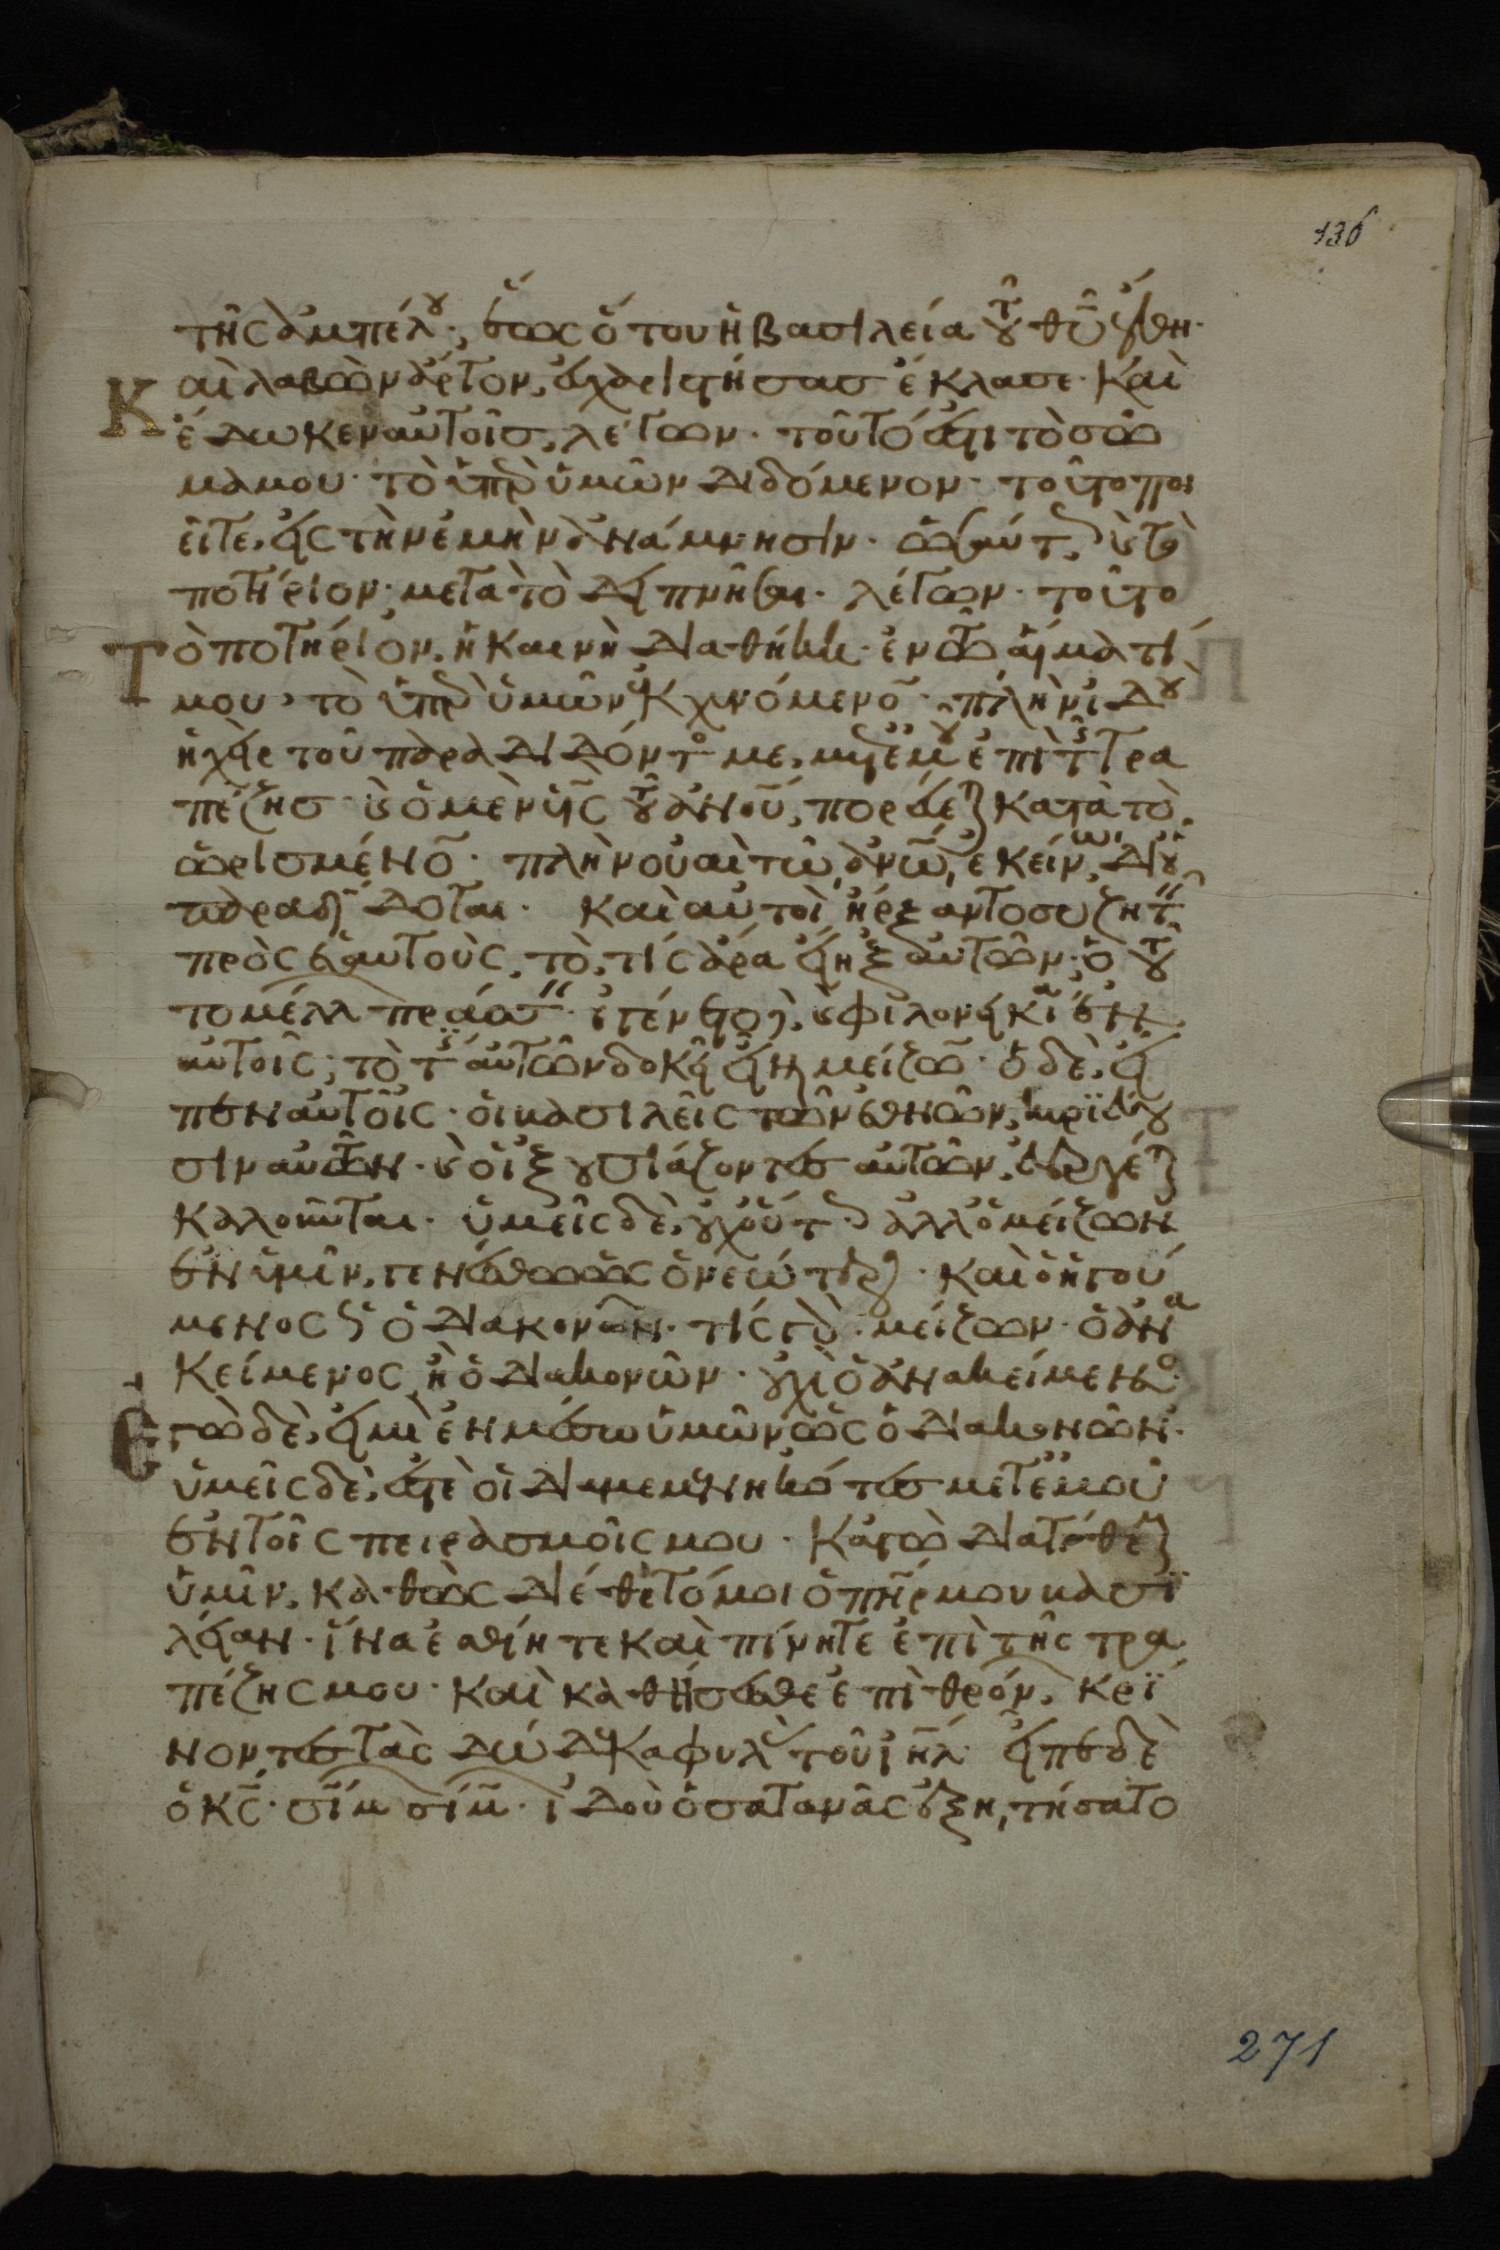 136
τῆς ἀμπέλου, ἕως ὅτου ἡ βασιλεία τοῦ θῦ ἔλθη·
Καὶ λαβὼν ἄρτον, εὐχαριστήσας ἔκλασε· καὶ
ἔδωκεν αὐτοῖς, λέγων· τοῦτό ἐστι τὸ σῶ
μα μου· τὸ ὑπὲρ ὑμῶν διδόμενον· τοῦτο ποι
εῖτε, εἰς τὴν ἐμὴν ἀνάμνησιν· ὡσαύτως καὶ τὸ
ποτήριον· μετὰ τὸ δειπνῆσαι· λέγων· τοῦτο
Τὸ ποτήριον, ἡ καινὴ διαθήκη· ἐν τῶ αἵματί
μου, τὸ ὑπὲρ ὑμῶν ἐκχυνόμενον· πλὴν ἰδοὺ
ἡ χεὶρ τοῦ παραδιδόντος με, μετ' ἐμοῦ ἐπὶ τῆς τρα
πέζης· καὶ ὁ μὲν υἱὸς τοῦ ἀνου, πορεύεται κατὰ τὸ
ὡρισμένον· πλὴν οὐαὶ τῶ ἀνω ἐκείνω, δι' οὗ
παραδίδοται· καὶ αὐτοὶ ἤρξαντο συζητεῖν
πρὸς ἑαυτοὺς, τὸ, τίς ἄρα εἴη ἐξ αὐτῶν· ὁ τοῦ
το μέλλων πράσσειν· ἐγένετο δὲ καὶ φιλονεικία ἐν
αὐτοῖς, τὸ τίς αὐτῶν δοκεῖ εἶναι μείζων· ὁ δὲ, εἶ
πεν αὐτοῖς· οἱ βασιλεῖς τῶν ἐθνῶν, κυριεύου
σιν αὐτῶν· καὶ οἱ ἐξουσιάζοντες αὐτῶν, εὐεργέται
καλοῦνται· ὑμεῖς δὲ, οὐχ οὕτως· ἀλλ' ὁ μείζων
ἐν ὑμῖν, γενέσθω ὡς ὁ νεώτερος· καὶ ὁ ἡγού
μενος ὡς ὁ διακονῶν· τίς γὰρ μείζων· ὁ ἀνα
κείμενος, ἢ ὁ διακονῶν· οὐχὶ ὁ ἀνακείμενος·
Ἐγὼ δὲ, εἰμὶ ἐν μέσω ὑμῶν ὡς ὁ διακονῶν·
ὑμεῖς δὲ, ἐστὲ οἱ διαμεμενηκότες μετ' ἐμοῦ
ἐν τοῖς πειρασμοῖς μου· κἀγὼ διατίθεμαι
ὑμῖν, καθὼς διέθετό μοι ὁ πηρ μου βασι
λείαν· ἵνα ἐσθίητε καὶ πίνητε ἐπὶ τῆς τρα
πέζης μου· καὶ καθήσεσθε ἐπὶ θρόνων, κρί
νοντες τὰς δώδεκα φυλὰς τοῦ ιηλ· εἶπε δὲ
ὁ κς· σίμων σίμων· ἰδοὺ ὁ σατανᾶς ἐξητήσατο
271